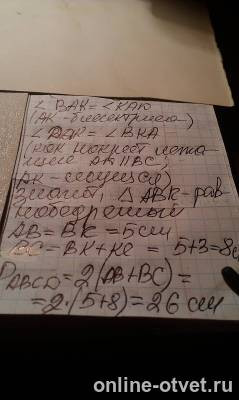 ∠ BAK = ∠ KAD
(AK - биссектриса)
∠ DAK = ∠ BKA
(как накрест лежа-
щие AD || BC,
AK - секущая)
Значит, △ ABK - рав-
нобедренный
AB = BK = 5см
BC = BK + KC = 5+3 = 8см
PABCD = 2(AB+BC) =
= 2·(5+8) = 26 см
online-otvet.ru